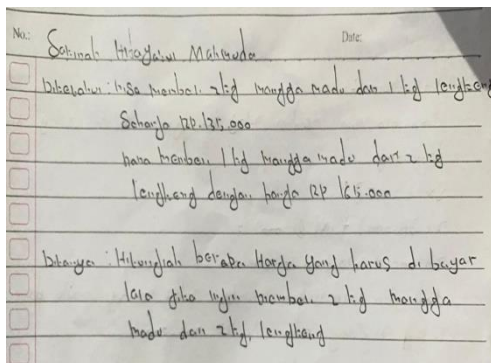 No.: Date:
Sakinah Hidayatul Mahmuda
Diketahui: nisa membeli 2 kg mangga madu dan 1 kg lengkeng
Seharga Rp.135,000
hana membeli 1 kg mangga madu dan 2 kg
lengkeng dengan harga Rp 165.000
Ditanya: Hitunglah berapa Harga yang harus di bayar
lala jika ingin membeli 2 kg mangga
madu dan 2 kg. lengkeng